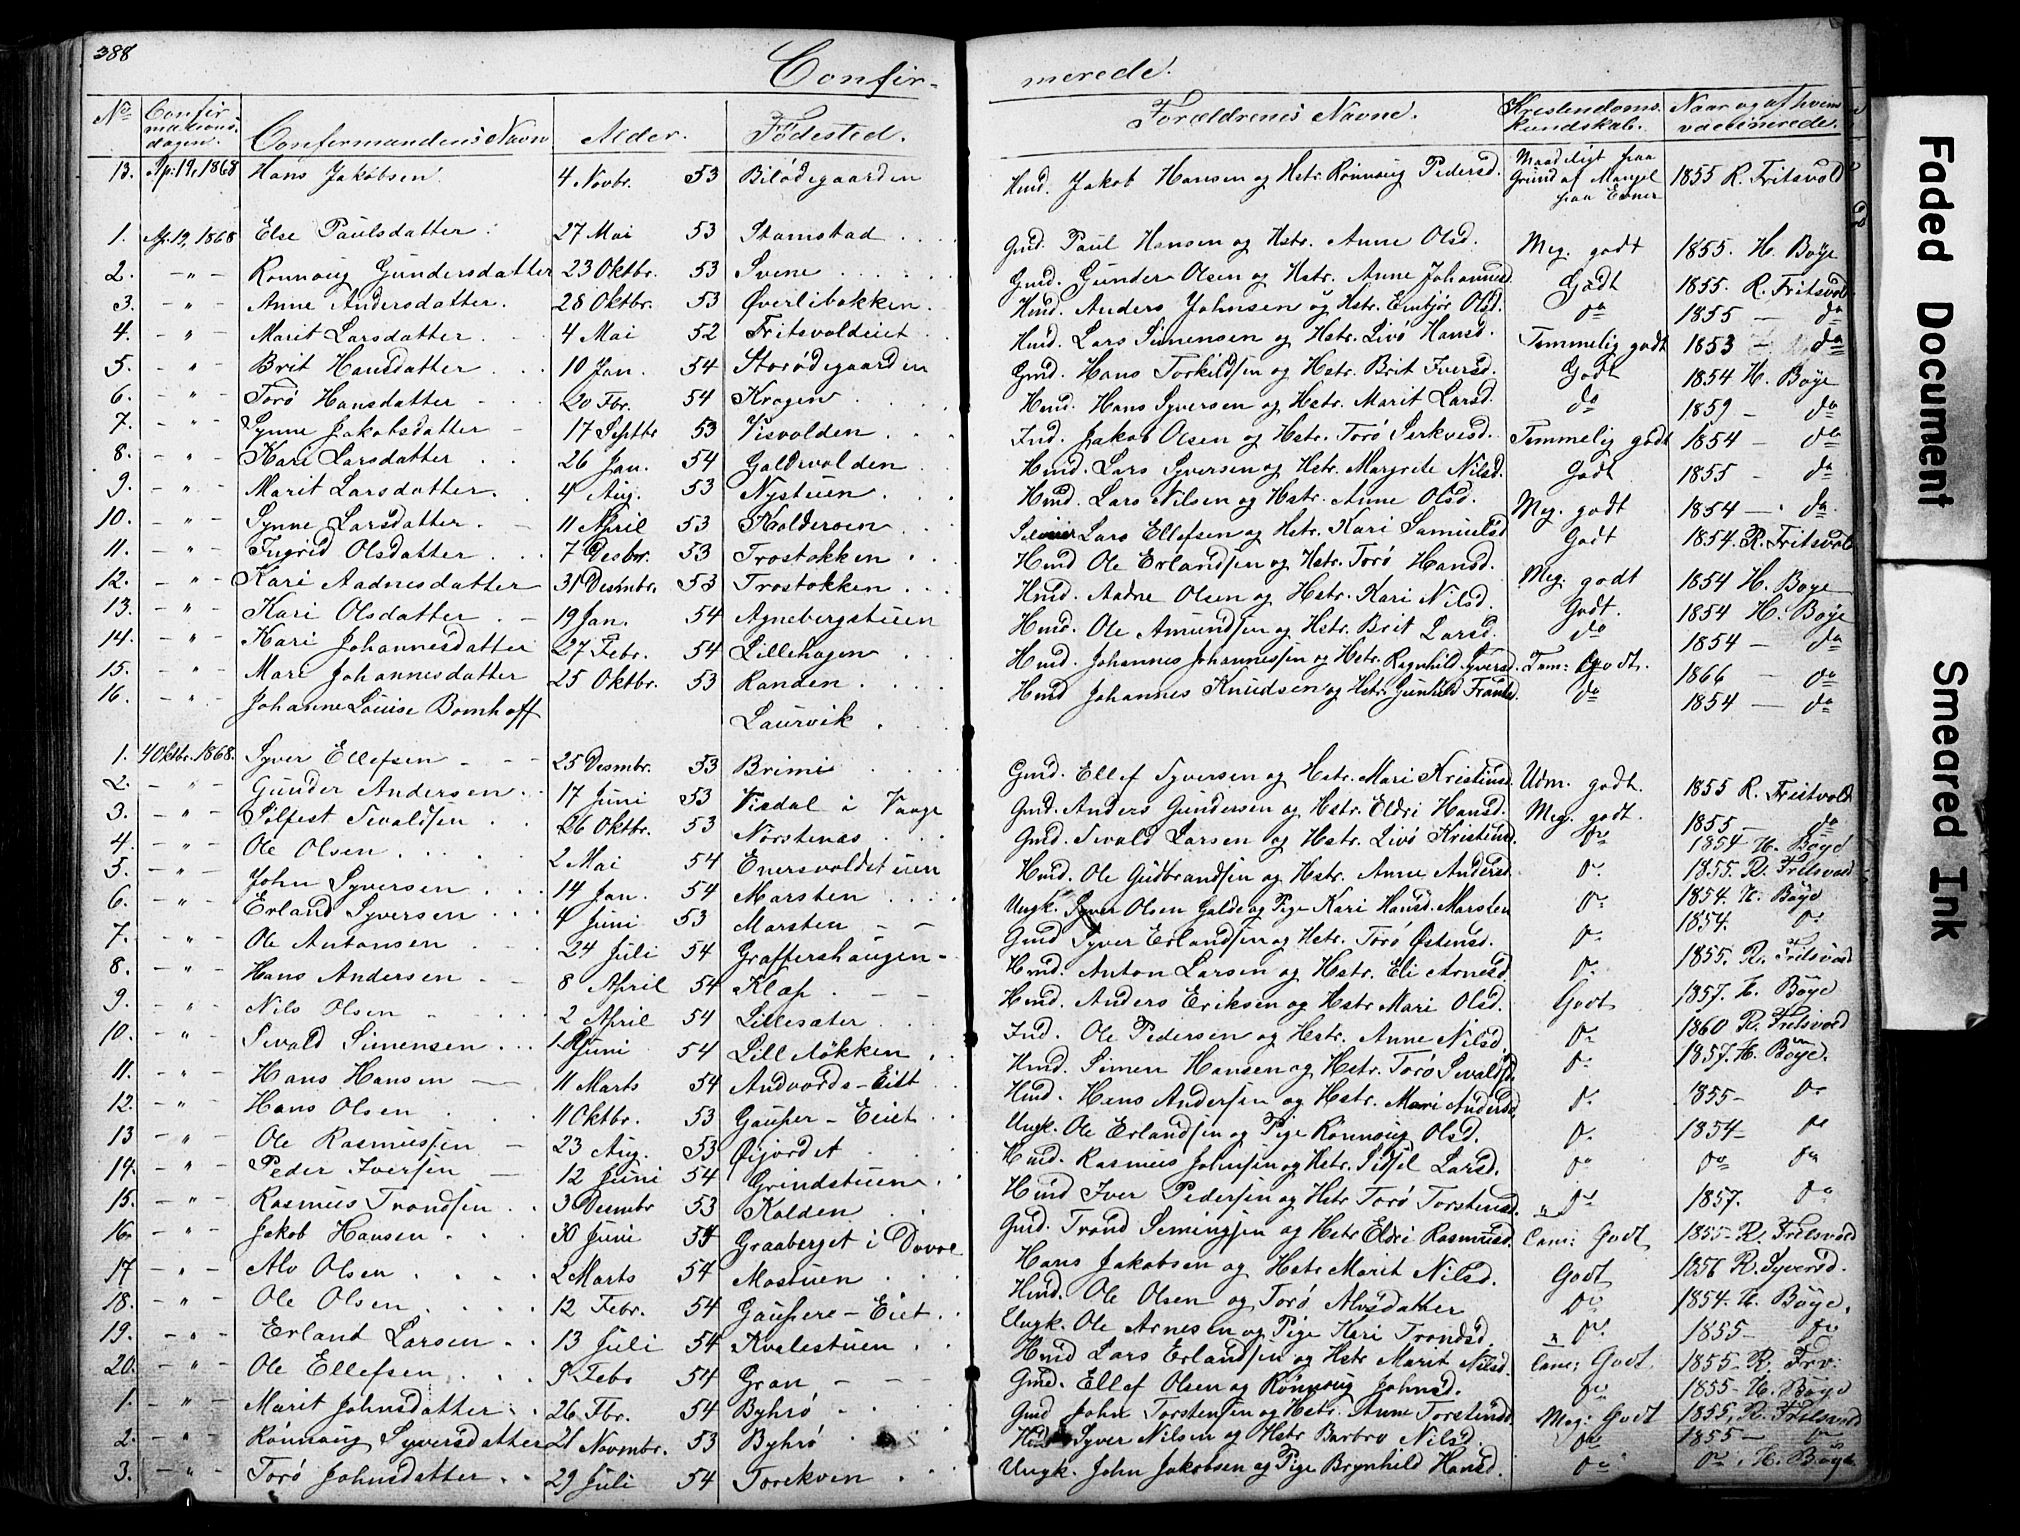 388
Confir-
merede.
No Confirmationsdagen. Confirmandens Navn Alder. Fødested. Forældrenes Navne. Kristendomskundskab. Naar og af hvem vaccinerede.
13. Ap. 19, 1868 Hans Jakobsen 4 Novbr. 53 Bilødegaarden Hmd. Jakob Hansen og Hstr. Rønnoug Pedersd. Maadeligt paa Grund af Mangel paa Evner 1855 R. Fritsvold
1. Ap. 19, 1868 Else Paulsdatter 27 Mai 53 Stamstad Gmd. Paul Hansen og Hstr. Anne Olsd. Meg. godt 1855. H. Bøye
2. - " - Rønnoug Gundersdatter 23 Oktbr. 53 Svene Gmd. Gunder Olsen og Hstr. Anne Johannesd. Godt 1855. R. Fritsvold
3. - " - Anne Andersdatter. 28 Oktbr. 53 Øverlibakken Hmd. Anders Johnsen og Hstr. Embjør Olsd. do 1855 - do
4. - " - Marit Larsdatter 4 Mai 52 Fritsvoldeiet Hmd. Lars Simensen og Hstr. Livø Hansd. Temmelig godt 1853 - do
5. - " - Brit Hansdatter 10 Jan. 54 Storødegaarden Gmd. Hans Torkildsen og Hstr. Brit Iversd. Godt 1854 H. Bøye
6. - " - Torø Hansdatter 20 Fbr. 54 Krogen Hmd. Hans Syversen og Hstr. Marit Larsd. do 1859 - do
7. - " - Synne Jakobsdatter 17 Septbr 53 Visvolden Ind. Jakob Olsen og Hstr. Torø Serkvisd. Temmelig godt 1854 - do
8. - " - Kari Larsdatter 26 Jan. 54 Galdevolden Hmd. Lars Syversen og Hstr. Margrete Nilsd. Godt 1855 - do
9. - " - Marit Larsdatter. 4 Aug. 53 Nystuen Hmd. Lars Nilsen og Hstr. Anne Olsd. Meg. godt 1854 - do
10. - " - Synne Larsdatter 11 April 53 Holdervien Lars Ellefsen og Hstr. Kari Samuelsd Godt 1854. R. Fritsvold
11. - " - Ingrid Olsdatter 7 Desbr. 53 Trostokken Hmd Ole Erlandsen og Hstr. Torø Hansd. Meg. godt 1854 H. Bøye
12. - " - Kari Aadnesdatter 31 Desmbr. 53 Trostokken Hmd. Aadne Olsen og Hstr. Kari Nilsd. Godt. 1854 H. Bøye
13. - " - Kari Olsdatter 19 Jan. 54 Agnebergstuen Hmd. Ole Amundsen og Hstr. Brit Larsd. do 1854 - do
14. - " - Kari Johannesdatter 27 Febr. 54 Lillehagen Hmd. Johannes Johannessen og Hstr. Ragnhild Syversd. Tem: Godt. 1866 - do
15. - " - Mari Johannesdatter 25 Oktbr. 53 Randen Hmd Johannes Knudsen og Hstr. Gunhild do 1854 - do
16. - " - Johanne Louise Bomhoff Laurvik
1. 4 Oktbr. 1868. Syver Ellefsen 25 Desmbr. 53 Brimi Gmd. Ellef Syversen og Hstr. Mari Kristiansd Udm. godt. 1855 R. Fritsvold
2. - " - Gunder Andersen 17 Juni 53 Visdal i Vaage Gmd. Anders Gundersen og Hstr. Eldri Hansd. Meg. godt. 1855 do
3. - " - Solfest Sivaldsen 26 Oktbr. 53 Norstenæs Gmd. Sivald Larsen og Hstr. Livø Kristensd. do 1854 H. Bøye
4. - " - Ole Olsen 2 Mai 54 Enersvoldstuen Hmd. Ole Gudbrandsen og Hstr. Anne Andersd do 1855. R. Fritsvold
5. - " - John Syversen 14 Jan. 54 Marsten Ungk. Syver Olsen Galde og Pige Kari Hansd. Marsten do 1854. H. Bøye
6. - " - Erland Syversen 4 Juni 53 Marsten Gmd Syver Erlandsen og Hstr. Torø Østensd. do 1854. do
7. - " - Ole Antonsen 24 Juli 54 Graffershaugen Hmd. Anton Larsen og Hstr. Eli Arnesd do 1855. R. Fritsvold
8. - " - Hans Andersen 8 April 54 Klæp Hmd. Anders Eriksen og Hstr Mari Olsd. Godt 1857. H. Bøye
9. - " - Nils Olsen 2 April 54 Lillesæter Ind. Ole Pedersen og Hstr. Anne Nilsd do 1860 R. Fritsvold
10. - " - Sivald Simensen 1 Juni 54 Lill Løkken Hmd. Simen Hansen og Hstr. Torø Sivaldsd. do 1857. H. Bøye.
11. - " - Hans Hansen 11 Marts 54 Andvords-Eiet Hmd. Hans Andersen og Hstr. Mari Andersd do 1855 - do
12. - " - Hans Olsen 11 Oktbr. 53 Gauper-Eiet Ungk. Ole Erlandsen og Pige Rønnoug Olsd. do 1854 - do
13 - " - Ole Rasmussen 23 Aug. 53 Øigordet Hmd. Rasmus Johnsen og Hstr. Sidsel Larsd. do do do
14. - " - Peder Iversen 12 Juni 54 Grindstuen Hmd Iver Pedersen og Hstr Torø Torstensd. do 1857. do
15. - " - Rasmus Trondsen 3 Desmbr 53 Kolden Gmd. Trond Semingsen og Hstr Eldri Rasmusd. Tem: Godt 1855 - R. Fritsvold
16. - " - Jakob Hansen 30 Juni 54 Graaberget i Dovre Hans Jakobsen og Hstr Marit Nilsd. Godt 1856 R. Syversd.
17 - " - Alv Olsen 2 Marts 54 Mostuen Hmd. Ole Olsen og Torø Alvsdatter do 1854. H. Bøye.
18. - " - Ole Olsen 12 Febr. 54 Gaupere-Eiet Ungk. Ole Arnesen og Pige Kari Trondsd. do 1855 - do
19. - " - Erland Larsen 13 Juli 54 Kvalestuen Hmd Lars Erlandsen og Hstr Marit Nilsd Tem: Godt 1855 - R. Frv:
20. - " - Ole Ellefsen Febr 54 Gran Gmd. Ellef Olsen og Rønnoug Johnsd. do 1855 - H. Bøye
1. - " - Marit Johnsdatter 26 Fbr. 54 Byhrø Gmd John Torstensen og Hstr. Anne Torstensd. Meg: Godt 1855, R. Fritsvold
2. - " - Rønnoug Syversdatter 21 Novmbr. 53 Byhrø Syver Nilsen og Hstr Barbro Nilsd do 1855 - do
3. - " - Torø Johnsdatter 29 Juli 54 Torekven Ungk. John Jakobsen og Pige Brynhild Hansd. do do. H. Bøye
Faded Document
Smeared Ink